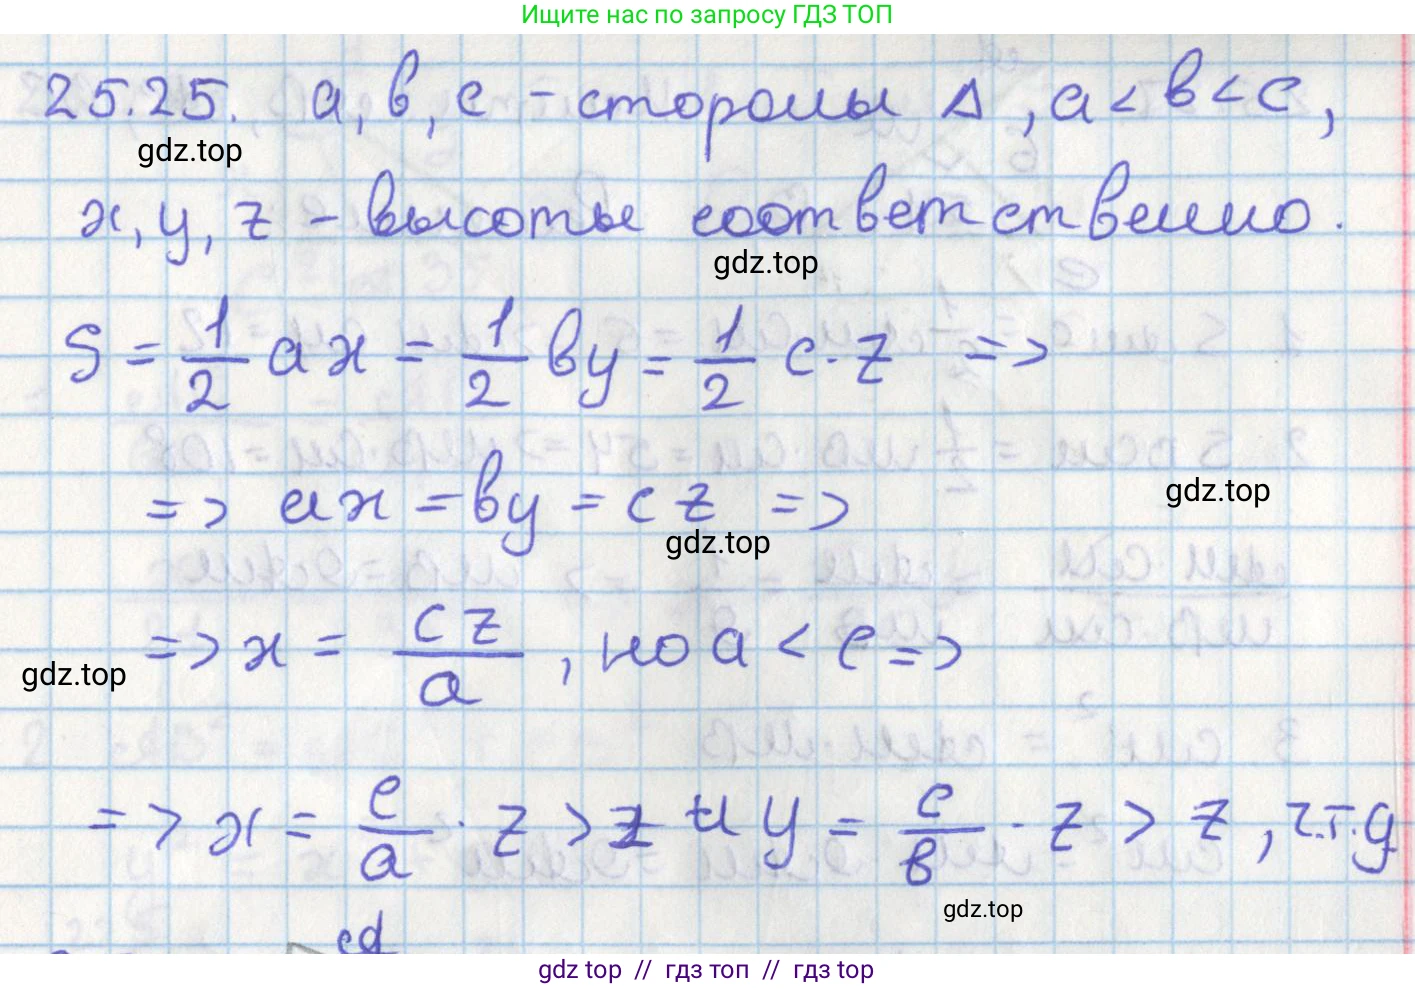 Ищите нас по запросу ГДЗ ТОП
25.25. a, b, c - стороны Δ, a < b < c,
gdz.top
x, y, z - высоты соответственно.
gdz.top
S = 1/2 ax = 1/2 by = 1/2 c · z =>
=> ax = by = cz =>
gdz.top
gdz.top
=> x = cz/a, но a < c =>
gdz.top
=> x = c/a · z > z и y = c/b · z > z, ч.т.д
gdz.top
gdz top // гдз топ // gdz top